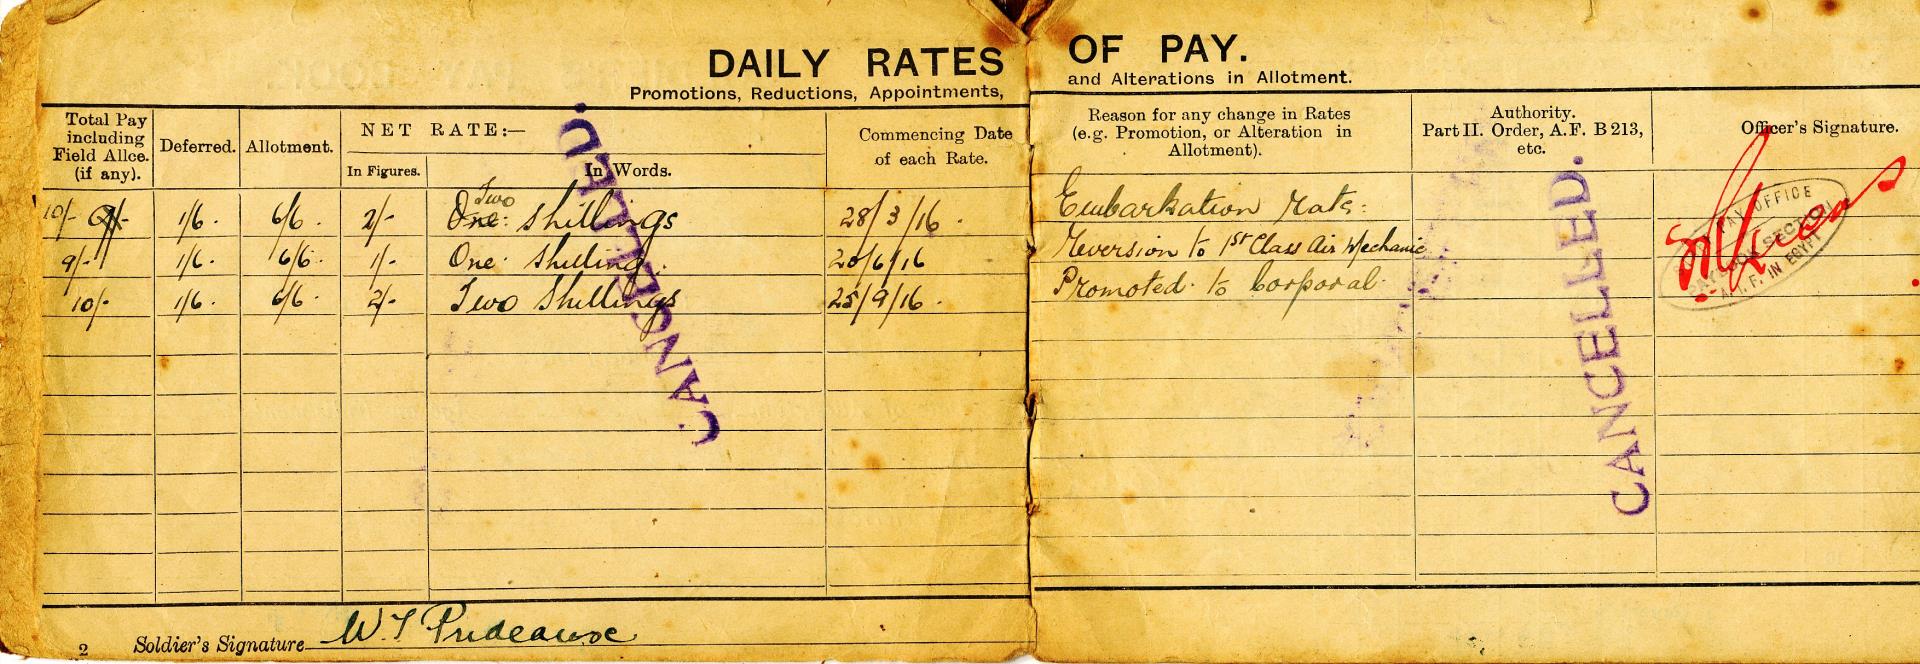 DAILY RATES OF PAY.
Promotions, Reductions, Appointments, and Alterations in Allotment.
Total Pay including Field Allce. (if any).
Deferred.
Allotment.
NET RATE:—
In Figures.
In Words.
Commencing Date of each Rate.
Reason for any change in Rates (e.g. Promotion, or Alteration in Allotment).
Authority. Part II. Order, A.F. B 213, etc.
Officer's Signature.
10/- 9/- 1/6. 6/6. 2/- One: Two shillings 28/3/16. Embarkation rate:
9/- 1/6. 6/6. 1/- One shilling. 20/6/16 Reversion to 1st Class Air Mechanic
10/- 1/6. 6/6. 2/- Two Shillings 25/9/16. Promoted to Corporal.
CANCELLED.
CANCELLED.
PAY OFFICE
PAYBOOK SECTION
A.I.F. IN EGYPT
2 Soldier's Signature W. T Prideaux